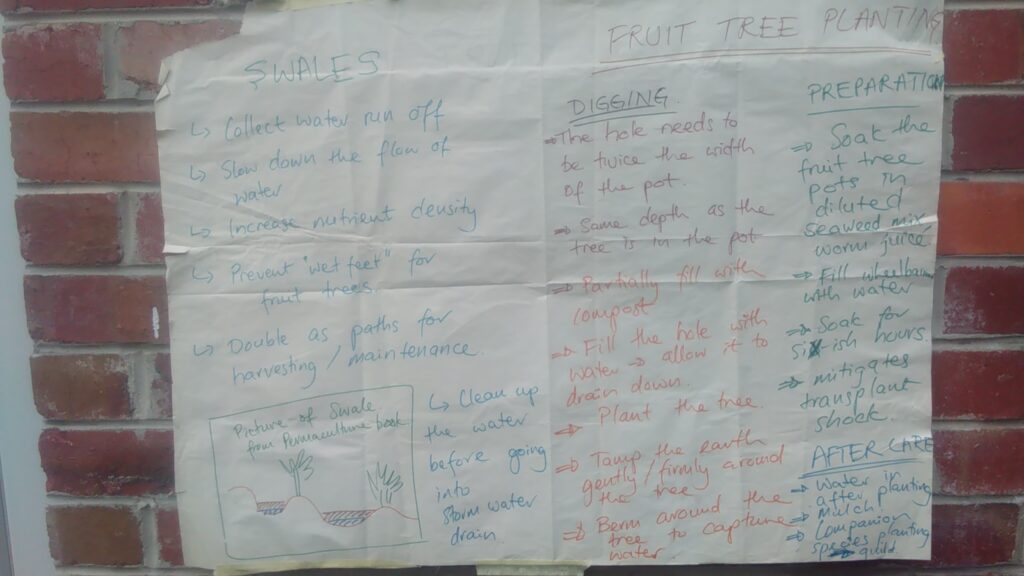 SWALES
↳ Collect water run off
↳ Slow down the flow of
water
↳ Increase nutrient density
↳ Prevent "wet feet" for
fruit trees.
↳ Double as paths for
harvesting / maintenance.
Picture of Swale
from Permaculture book
↳ Clean up
the water
before going
into
storm water
drain
FRUIT TREE PLANTING
DIGGING
⇒ The hole needs to
be twice the width
of the pot.
⇒ Same depth as the
tree is in the pot
⇒ Partially fill with
compost
⇒ Fill the hole with
water → allow it to
drain down.
⇒ Plant the tree.
⇒ Tamp the earth
gently / firmly around
the tree
⇒ Berm around the
tree to capture
water.
PREPARATION
⇒ Soak the
fruit tree
pots in
diluted
seaweed mix,
worm juice
⇒ Fill wheelbarrow
with water
⇒ Soak for
six-ish hours.
⇒ mitigates
transplant
shock.
AFTER CARE
⇒ Water in
after planting
⇒ mulch
⇒ Companion
species planting
guild